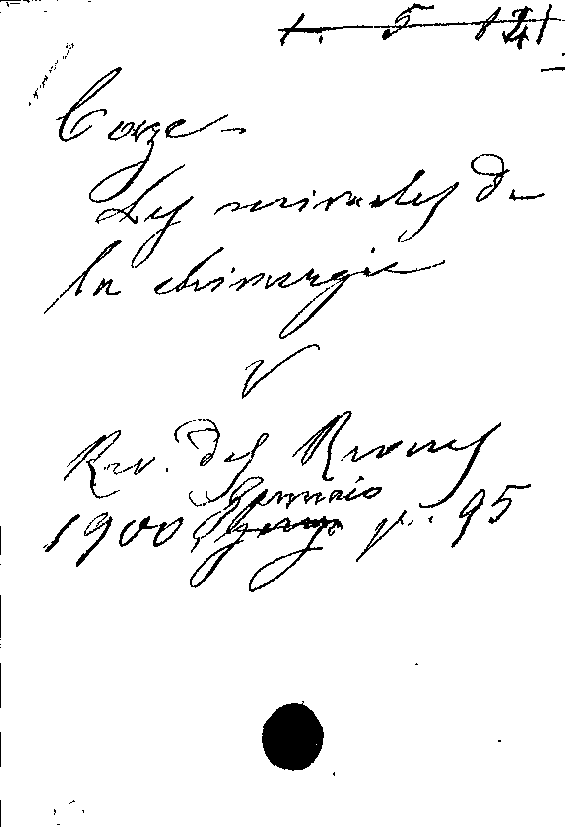 1. 5 141
Caze -
Les miracles de
la chirurgie
V
Rev. des Revues
Gennaio
1900 p. 95